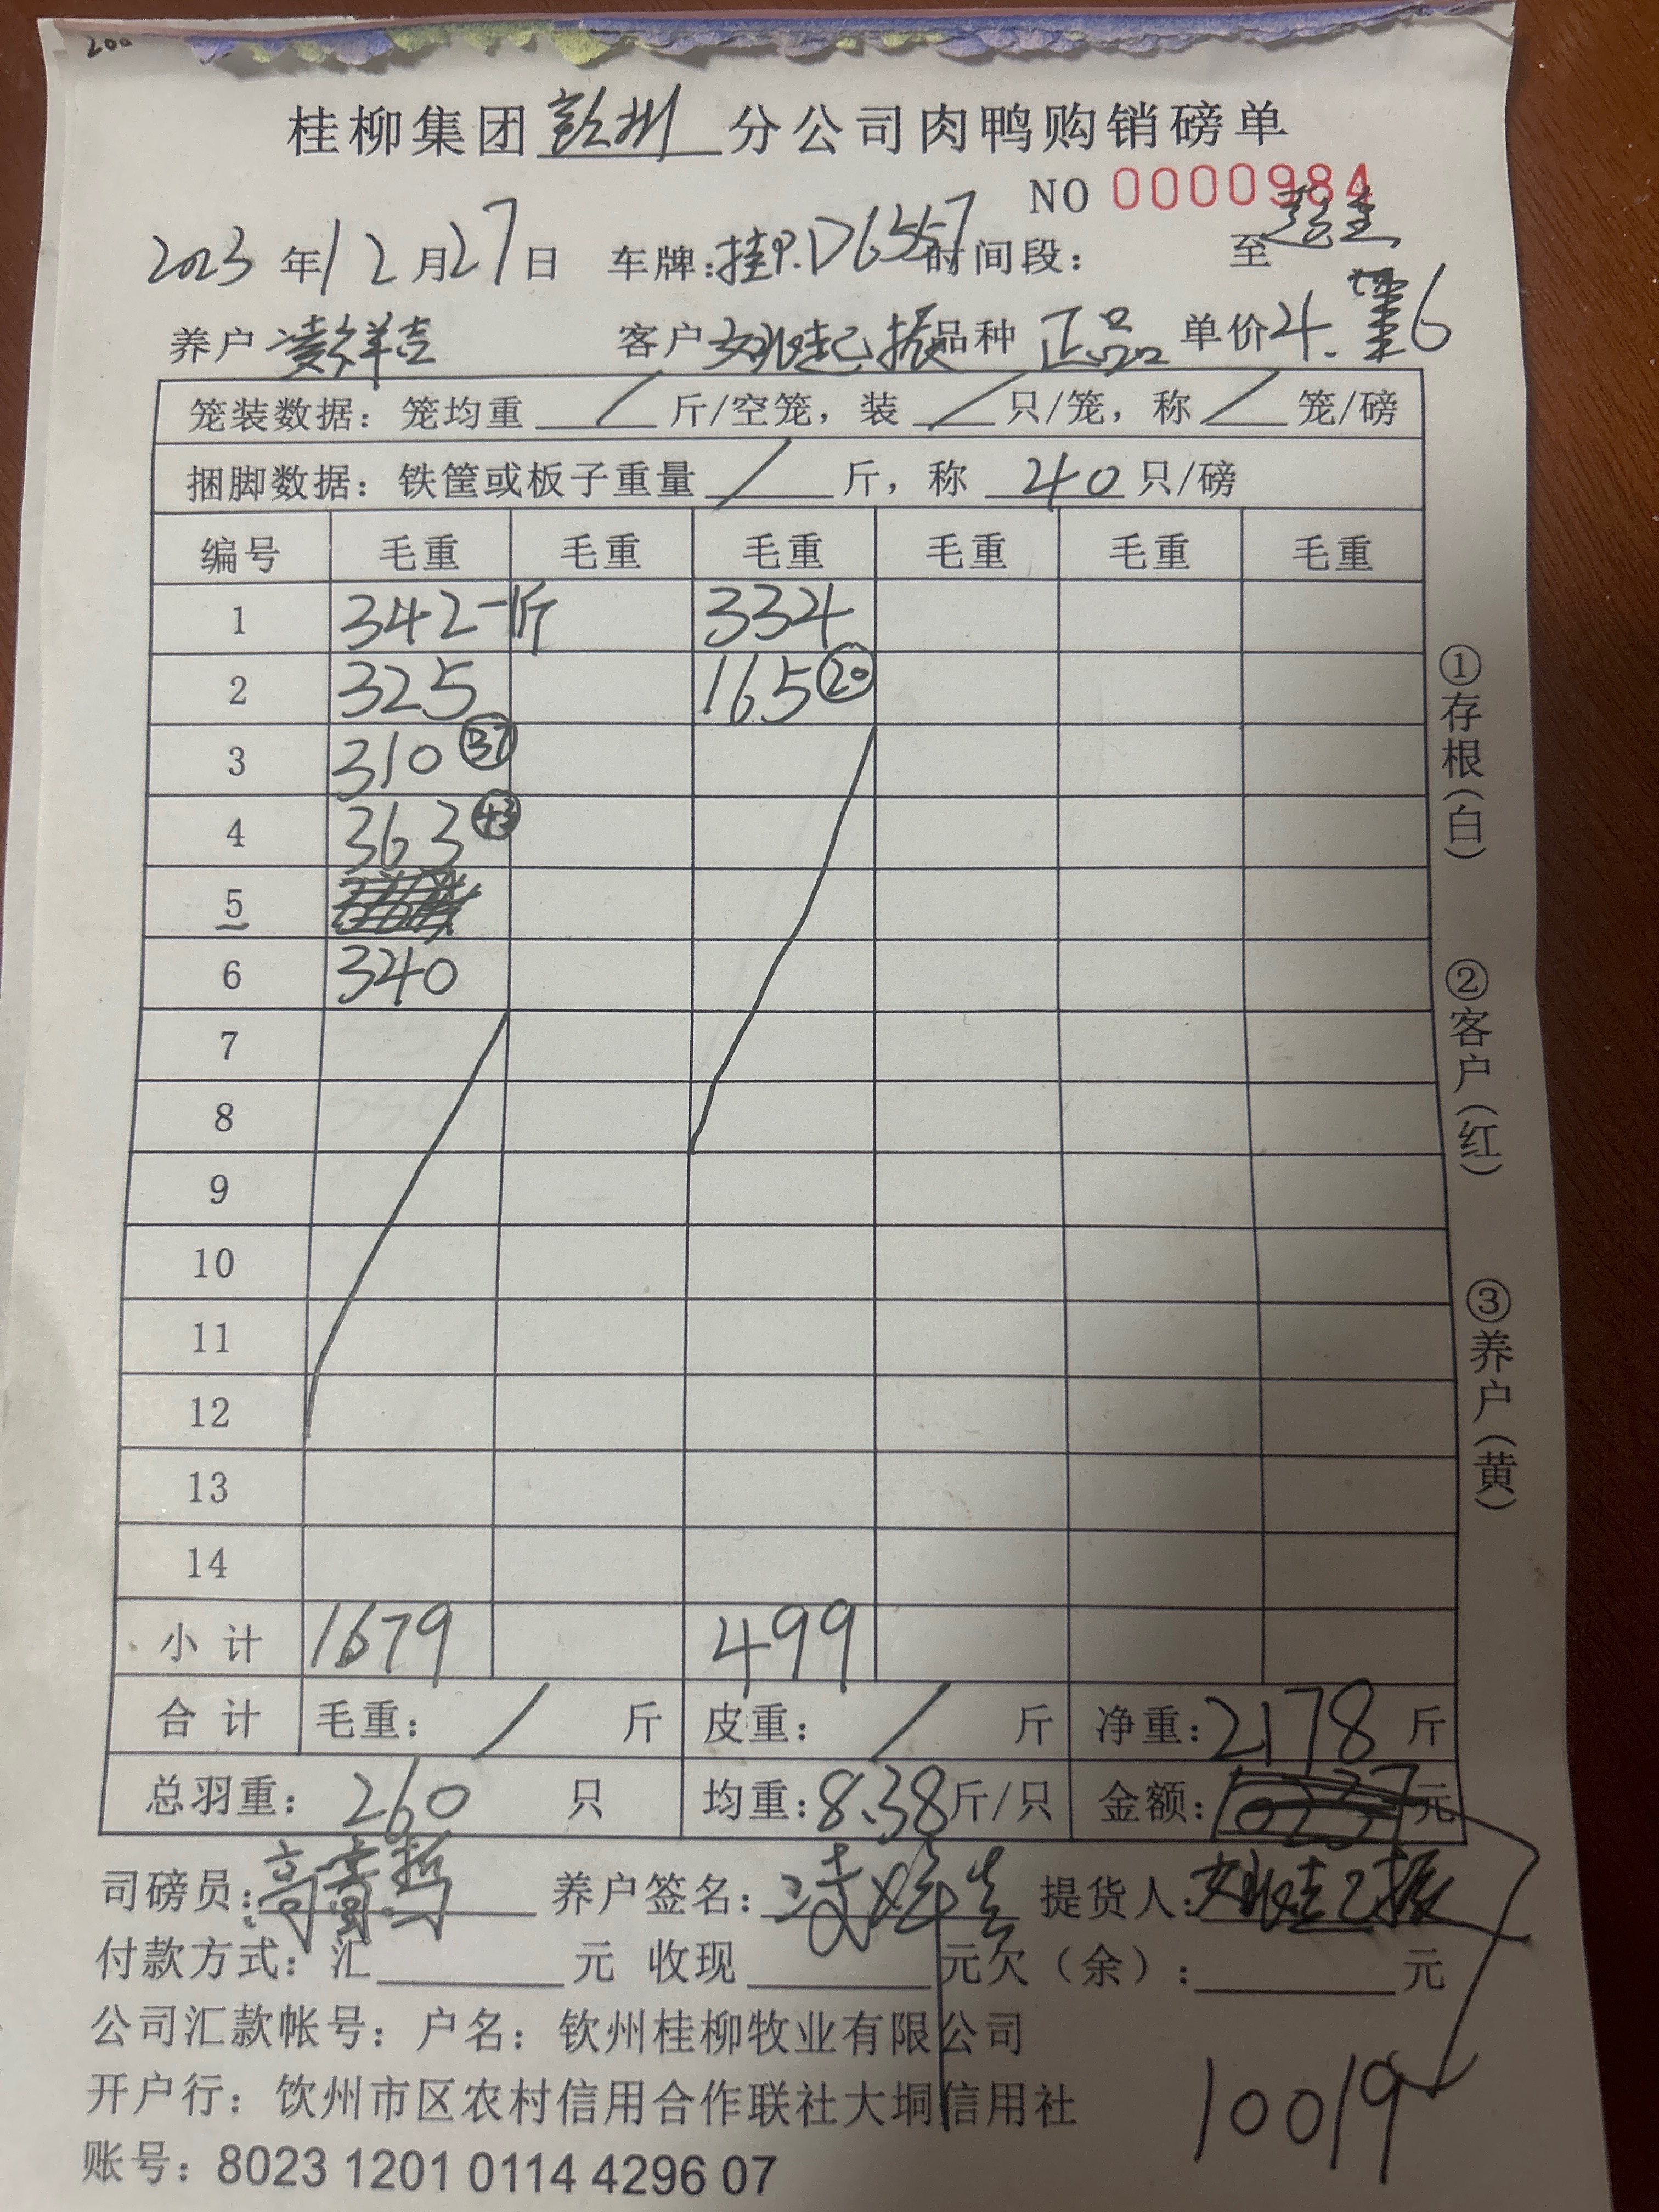 200
桂柳集团钦州分公司肉鸭购销磅单
NO 0000984
2023年12月27日 车牌:桂P.D6557 时间段: 至
养户 凌祥吉 客户 振 品种 正品 单价 4. 6
笼装数据: 笼均重 / 斤/空笼, 装 / 只/笼, 称 / 笼/磅
捆脚数据: 铁筐或板子重量 / 斤, 称 40 只/磅
编号 毛重 毛重 毛重 毛重 毛重 毛重
1 342 一斤 334
2 325 165 ⑳
3 310 ㊲
4 363 ㊸
5
6 340
7
8
9
10
11
12
13
14
小计 1679 499
合计 毛重: / 斤 皮重: / 斤 净重: 2178 斤
总羽重: 260 只 均重: 8.38 斤/只 金额: 元
司磅员: 养户签名: 凌祥吉 提货人: 振
付款方式: 汇 元 收现 元 欠(余): 元
公司汇款帐号: 户名: 钦州桂柳牧业有限公司
开户行: 饮州市区农村信用合作联社大垌信用社
10019
账号: 8023 1201 0114 4296 07
①存根(白)
②客户(红)
③养户(黄)